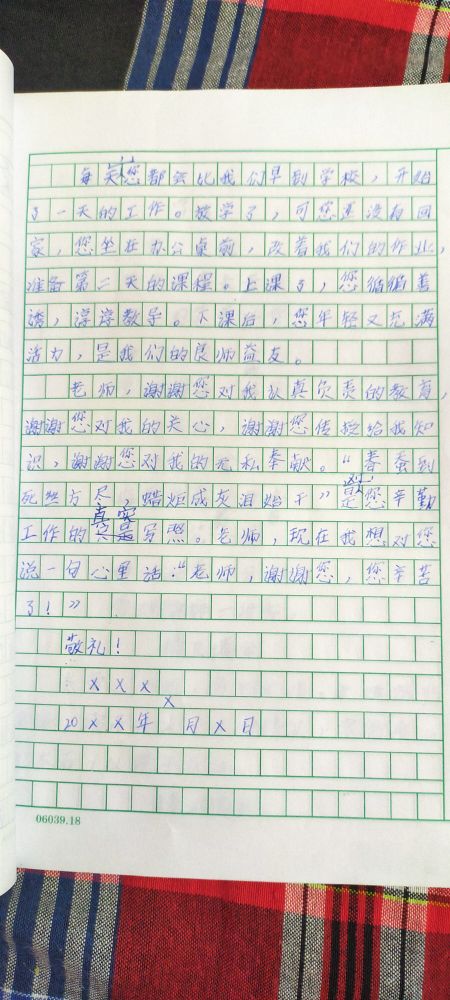 每天您都会比我们早到学校，开始
了一天的工作。放学了，可您还没有回
家，您坐在办公桌前，改着我们的作业，
准备第二天的课程。上课了，您循循善
诱，谆谆教导。下课后，您年轻又充满
活力，是我们的良师益友。
老师，谢谢您对我认真负责的教育，
谢谢您对我的关心，谢谢您传授给我知
识，谢谢您对我的无私奉献。“春蚕到
死丝方尽，蜡炬成灰泪始干”就是您辛勤
工作的真实写照。老师，现在我想对您
说一句心里话：“老师，谢谢您，您辛苦
了！”
敬礼！
XXX
20XX年X月X日
06039.18